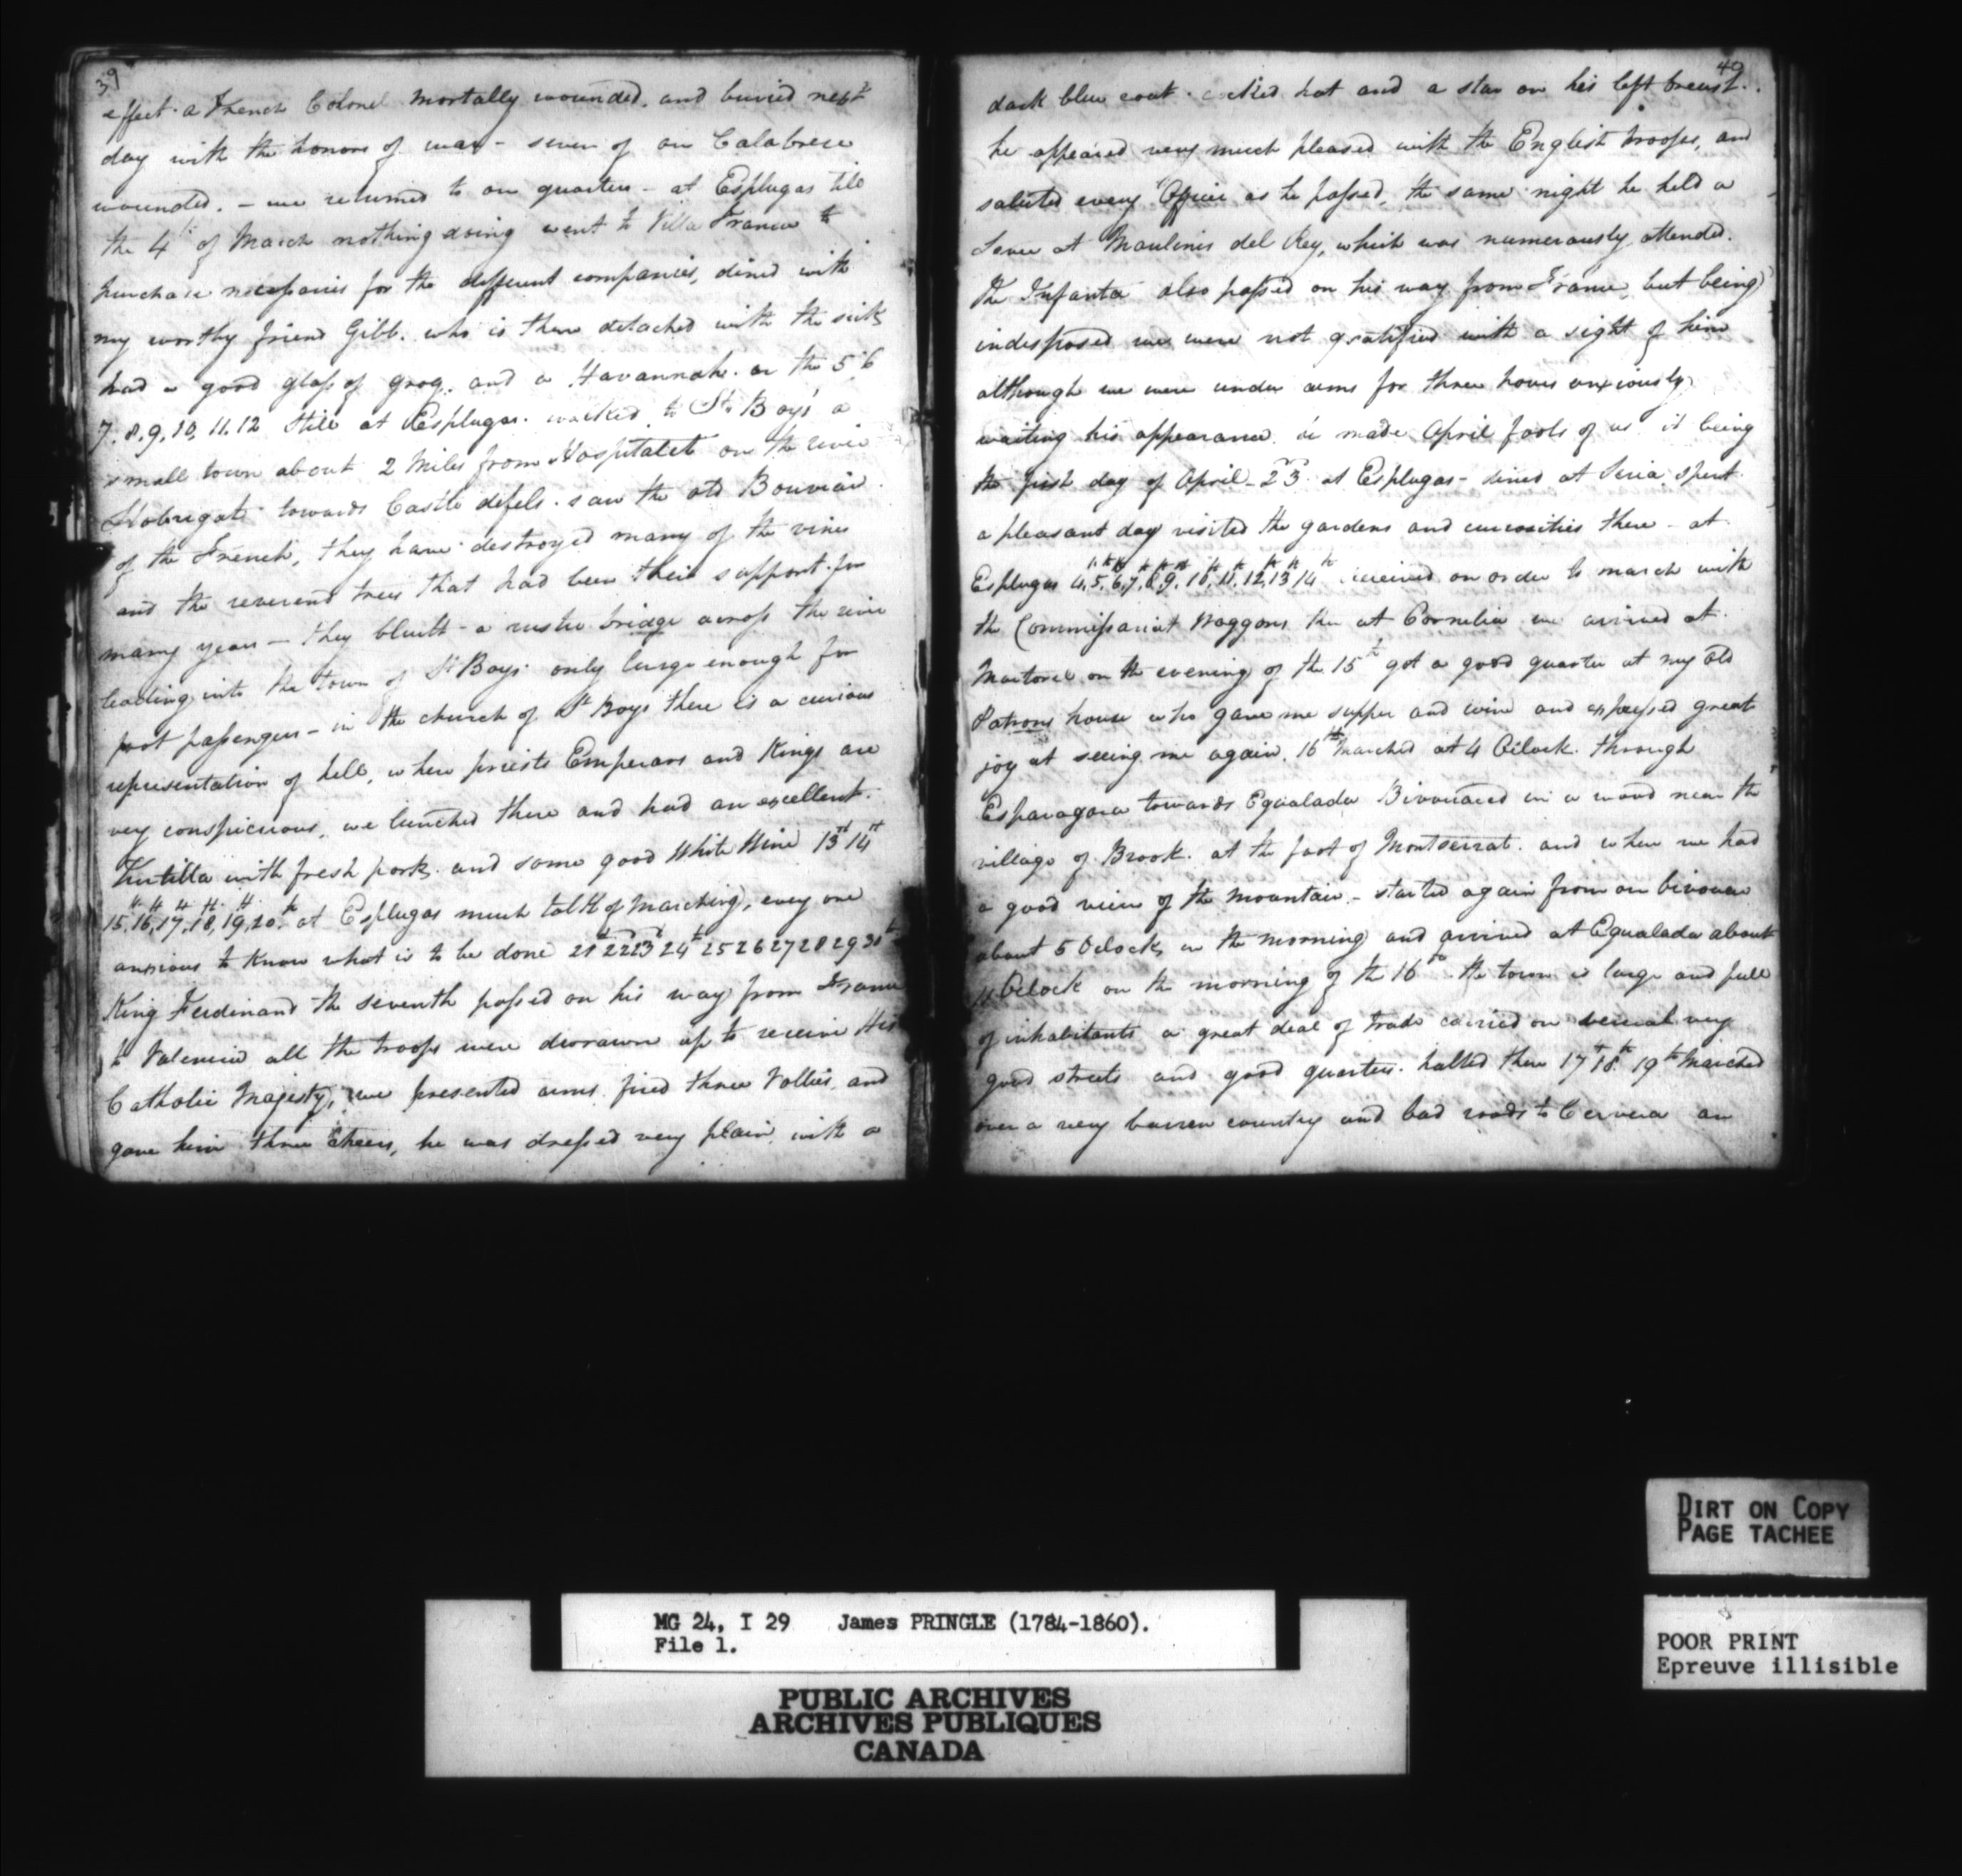 39
effect. a French Colonel mortally wounded. and buried next
day with the honors of war - seven of our Calabrese
wounded. - we returned to our quarters - at Esplugas till
the 4th of March nothing doing went to Villa Franca to
purchase necessaries for the different companies, dined with
my worthy friend Gibb. who is there detached with the sick
had a good glass of grog. and a Havannah. on the 5 6
7. 8. 9. 10. 11. 12 still at Esplugas. walked to St Boys a
small town about 2 Miles from Hospitalet on the river
Llobregat towards Castle defels. saw the old Bouviac
of the French, they have destroyed many of the vines
and the reverend trees that had been their support for
many years - they bluilt a rustic bridge across the river
leading into the town of St Boys only large enough for
foot passengers - in the church of St Boys there is a curious
representation of hell, where priests Emperors and Kings are
very conspicuous, we lunched there and had an excellent
with fresh pork. and some good White Wine 13th 14th
15. 16, 17. 18, 19, 20. at Esplugas much talk of marching, every one
anxious to know what is to be done 21 22 23 24th 25 26 27 28 29 30th
King Ferdinand the seventh passed on his way from France
to Valencia all the troops were drawn up to receive His
Catholic Majesty, we presented arms fired three vollies and
gave him three cheers, he was dressed very plain with a
40
dark blue coat. cocked hat and a star on his left breast.
he appeared very much pleased with the English troops, and
saluted every Officer as he passed, the same night he held a
Levee at Maulinis del Rey, which was numerously attended.
The Infanta also passed on his way from France, but being
indisposed we were not gratified with a sight of him
although we were under arms for three hours anxiously
waiting his appearance. he made April fools of us it being
the first day of April - 2 3 at Esplugas - dined at Seria spent
a pleasant day visited the gardens and curiosities there - at
Esplugas 4, 5, 6, 7, 8, 9. 10, 11. 12, 13 14 received an order to march with
the Commissariat Waggons then at Cornelia we arrived at
Martorel on the evening of the 15th got a good quarter at my old
Patrons house who gave me supper and wine and expressed great
joy at seeing me again. 16th Marched at 4 Oclock. through
Esparagara towards Egualada Bivouaced in a wood near the
village of Brook. at the foot of Montserrat. and when we had
a good view of the mountain - started again from our bivouac
about 5 Oclock in the morning and arrived at Egualada about
11 Oclock on the morning of the 16th the town is large and full
of inhabitants a great deal of trade carried on several very
good streets and good quarters. halted there 17th 18th 19th Marched
over a very barren country and bad roads to Cervera an
DIRT ON COPY
PAGE TACHEE
POOR PRINT
Epreuve illisible
MG 24, I 29 James PRINGLE (1784-1860).
File 1.
PUBLIC ARCHIVES
ARCHIVES PUBLIQUES
CANADA